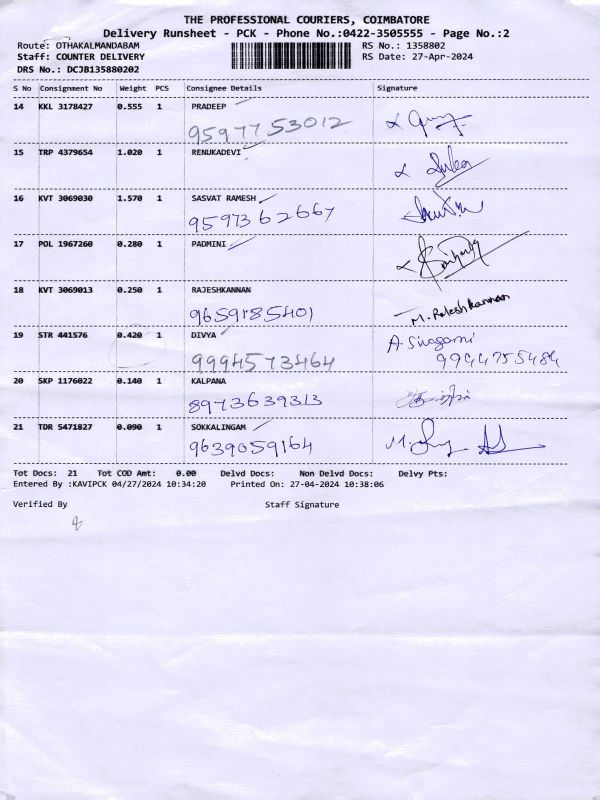 THE PROFESSIONAL COURIERS, COIMBATORE
Delivery Runsheet - PCK - Phone No.:0422-3505555 - Page No.:2
Route: OTHAKALMANDABAM RS No.: 1358802
Staff: COUNTER DELIVERY RS Date: 27-Apr-2024
DRS No.: DCJB135880202
S No Consignment No Weight PCS Consignee Details Signature
14 KKL 3178427 0.555 1 PRADEEP
9597753012
15 TRP 4379654 1.020 1 RENUKADEVI
16 KVT 3069030 1.570 1 SASVAT RAMESH
9597362667
17 POL 1967260 0.280 1 PADMINI
18 KVT 3069013 0.250 1 RAJESHKANNAN
9659185401 M. Rajeshkannan
19 STR 441576 0.420 1 DIVYA A. Sivagami
9994573464 9944755484
20 SKP 1176022 0.140 1 KALPANA
8973639313
21 TDR 5471827 0.090 1 SOKKALINGAM
9639059164
Tot Docs: 21 Tot COD Amt: 0.00 Delvd Docs: Non Delvd Docs: Delvy Pts:
Entered By :KAVIPCK 04/27/2024 10:34:20 Printed On: 27-04-2024 10:38:06
Verified By Staff Signature